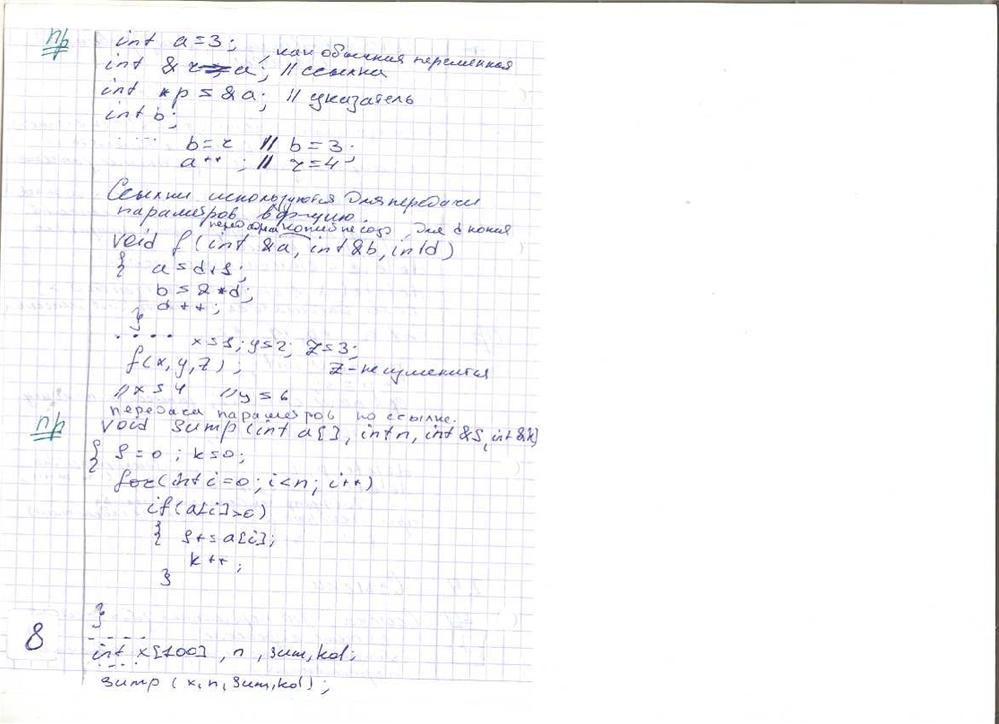 пр
int a=3;
как обычная переменная
int & r=a; // ссылка
int *p = &a; // указатель
int b;
.... b=r // b=3;
a++; // r=4;
Ссылки используются для передачи
параметров в ф-цию.
для d копия
void f(int &a, int &b, int d)
{ a=d+1;
b=2*d;
d++;
}
.... x=1; y=2; z=3;
f(x,y,z); z-не изменится
//x=4 //y=6
передача параметров по ссылке.
пр
void sump(int a[], int n, int &S, int &k)
{ S=0; k=0;
for(int i=0; i<n; i++)
if(a[i]>0)
{ S+=a[i];
k++;
}
}
8
-----
int x[100], n, sum, kol;
....
sump(x,n,sum,kol);